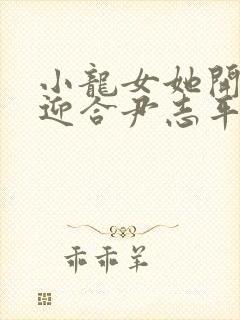 小龍女她開
迎合尹志平
乖乖羊